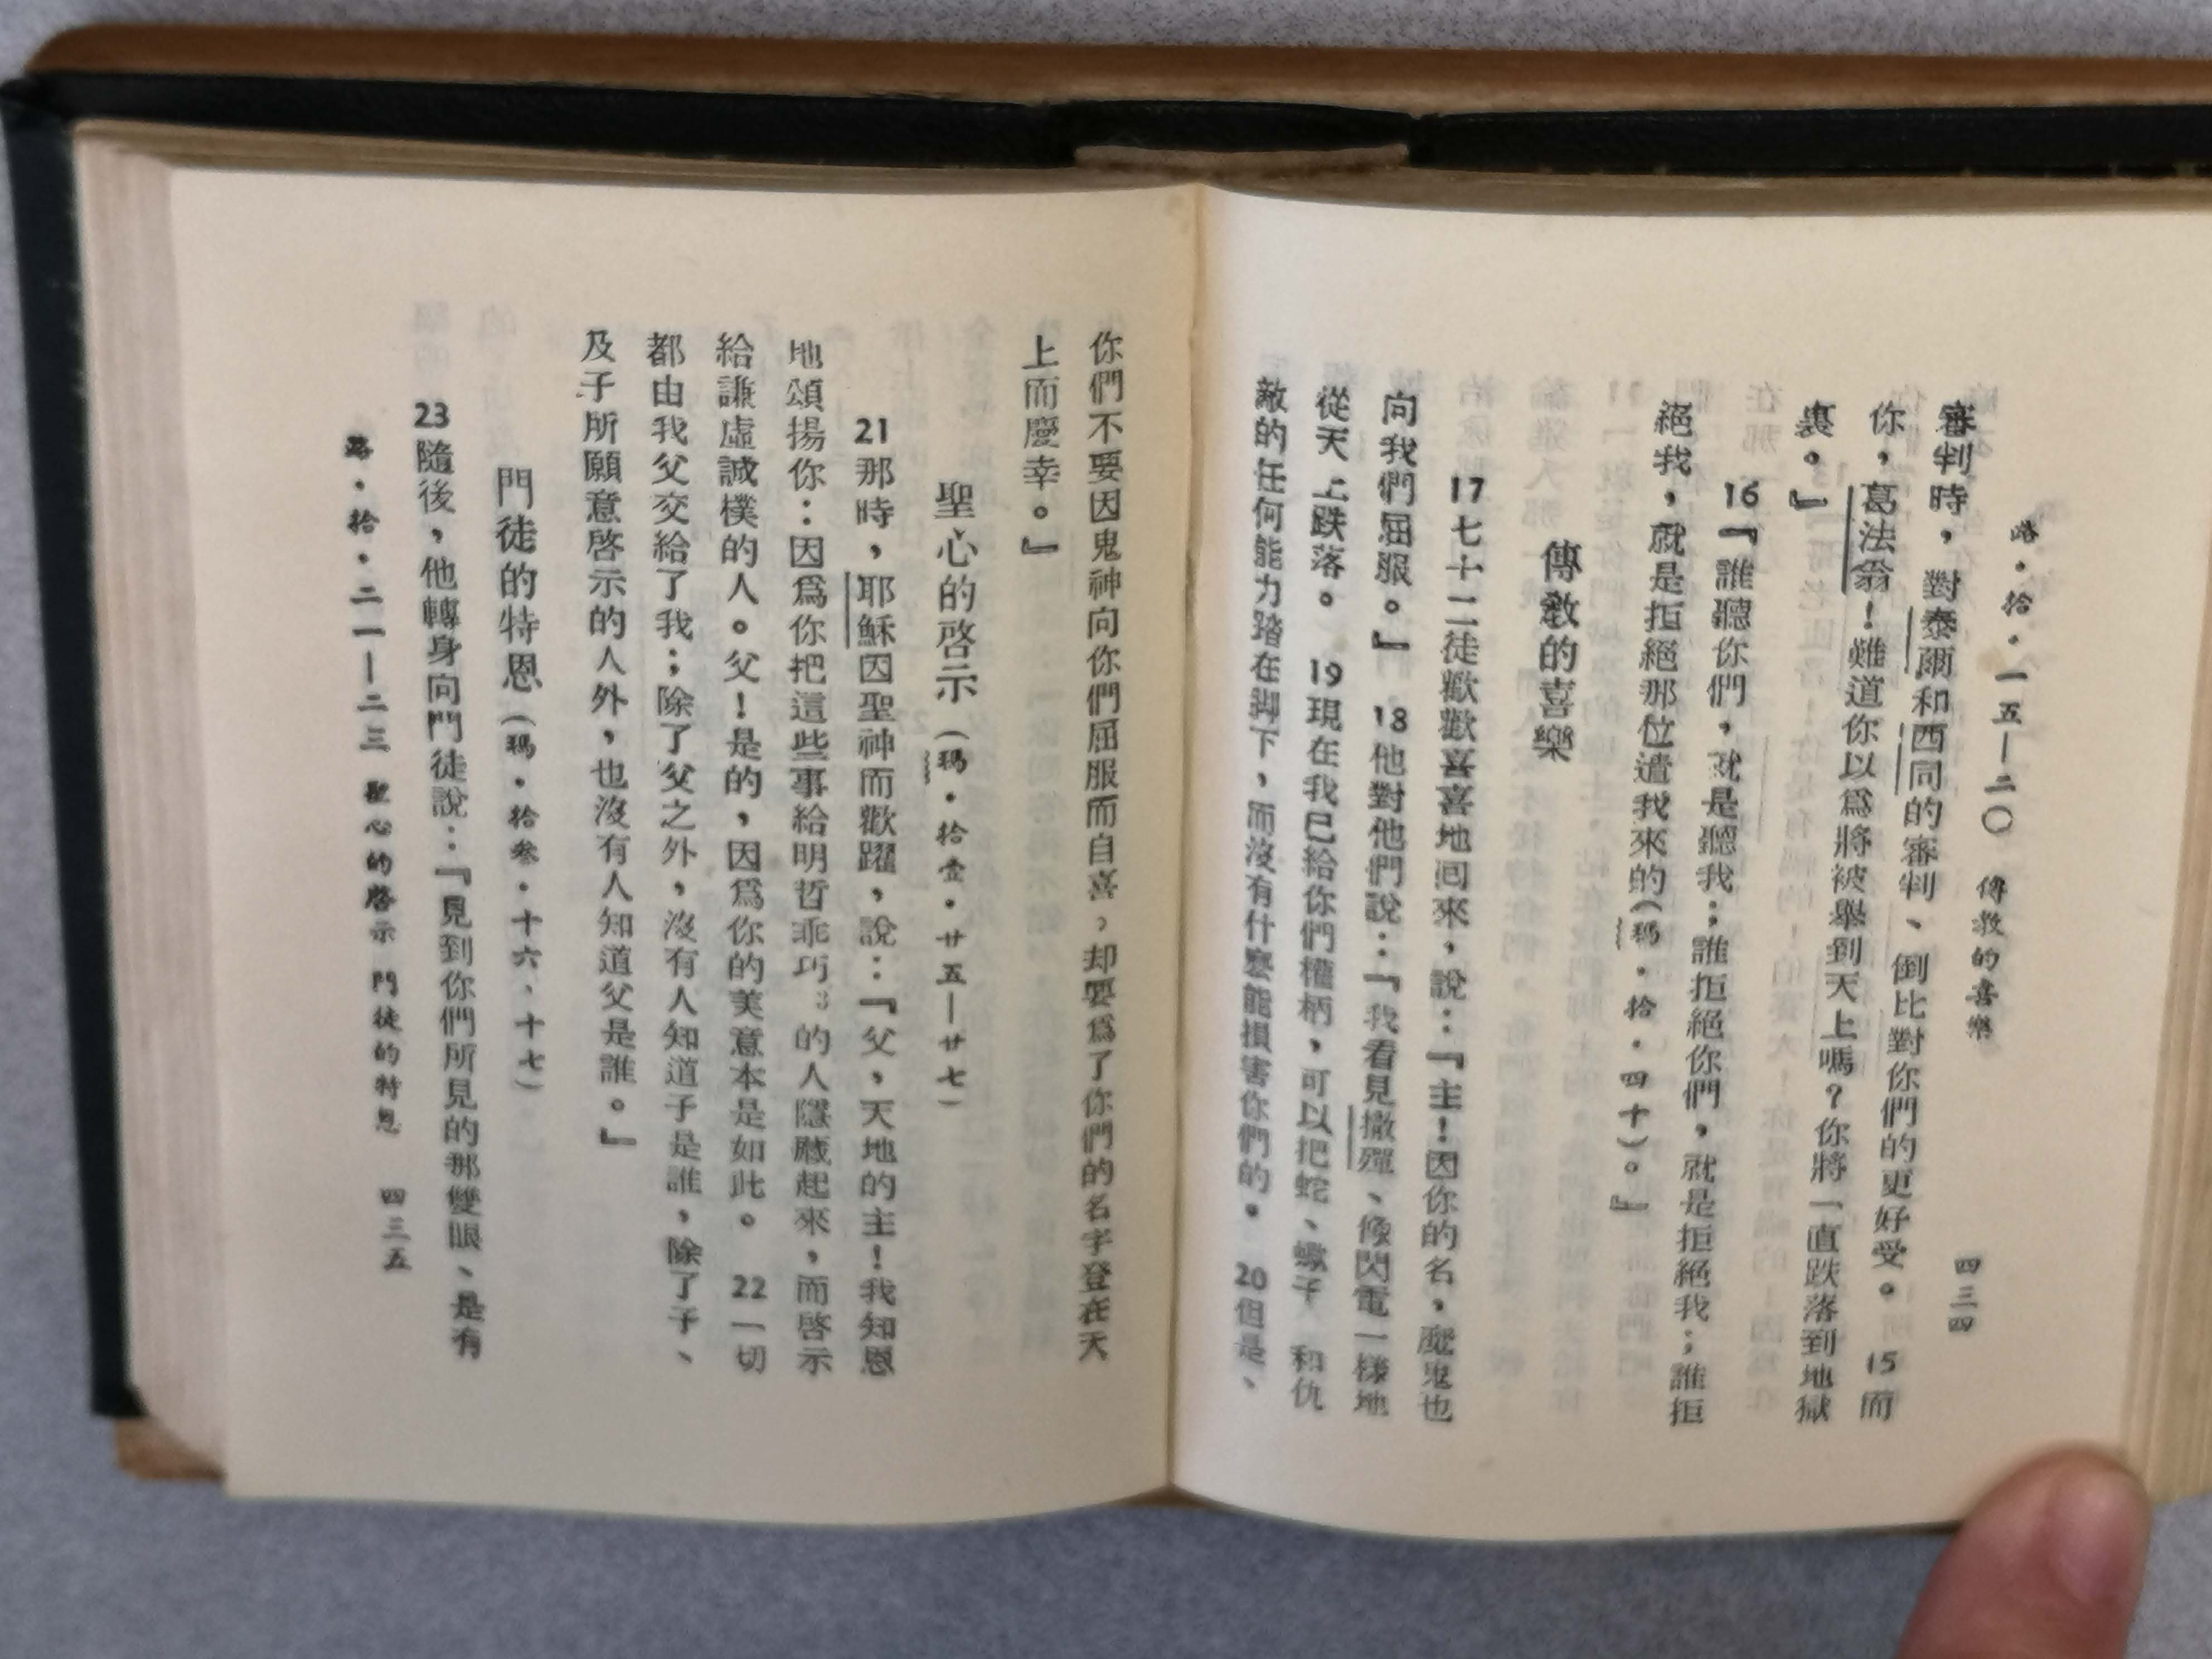 路・拾・一五—二〇　傳敎的喜樂　四三四
審判時，對泰爾和西同的審判、倒比對你們的更好受。　15而
你，葛法翁！難道你以爲將被舉到天上嗎？你將一直跌落到地獄
裏。』
16『誰聽你們，就是聽我；誰拒絕你們，就是拒絕我；誰拒
絕我，就是拒絕那位遣我來的（瑪・拾・四十）。』
傳敎的喜樂
17七十二徒歡歡喜喜地回來，說：『主！因你的名，魔鬼也
向我們屈服。』　18他對他們說：『我看見撒殫、像閃電一樣地
從天上跌落。　19現在我已給你們權柄，可以把蛇、蠍子　和仇
敵的任何能力踏在脚下，而沒有什麽能損害你們的。　20但是、
你們不要因鬼神向你們屈服而自喜，却要爲了你們的名字登在天
上而慶幸。』
聖心的啓示（瑪・拾壹・廿五—廿七）
21那時，耶穌因聖神而歡躍，說：『父，天地的主！我知恩
地頌揚你：因爲你把這些事給明哲乖巧3的人隱藏起來，而啓示
給謙虛誠樸的人。父！是的，因爲你的美意本是如此。　22一切
都由我父交給了我；除了父之外，沒有人知道子是誰，除了子、
及子所願意啓示的人外，也沒有人知道父是誰。』
門徒的特恩（瑪・拾叁・十六、十七）
23隨後，他轉身向門徒說：『見到你們所見的那雙眼、是有
路・拾・二一—二三　聖心的啓示　門徒的特恩　四三五